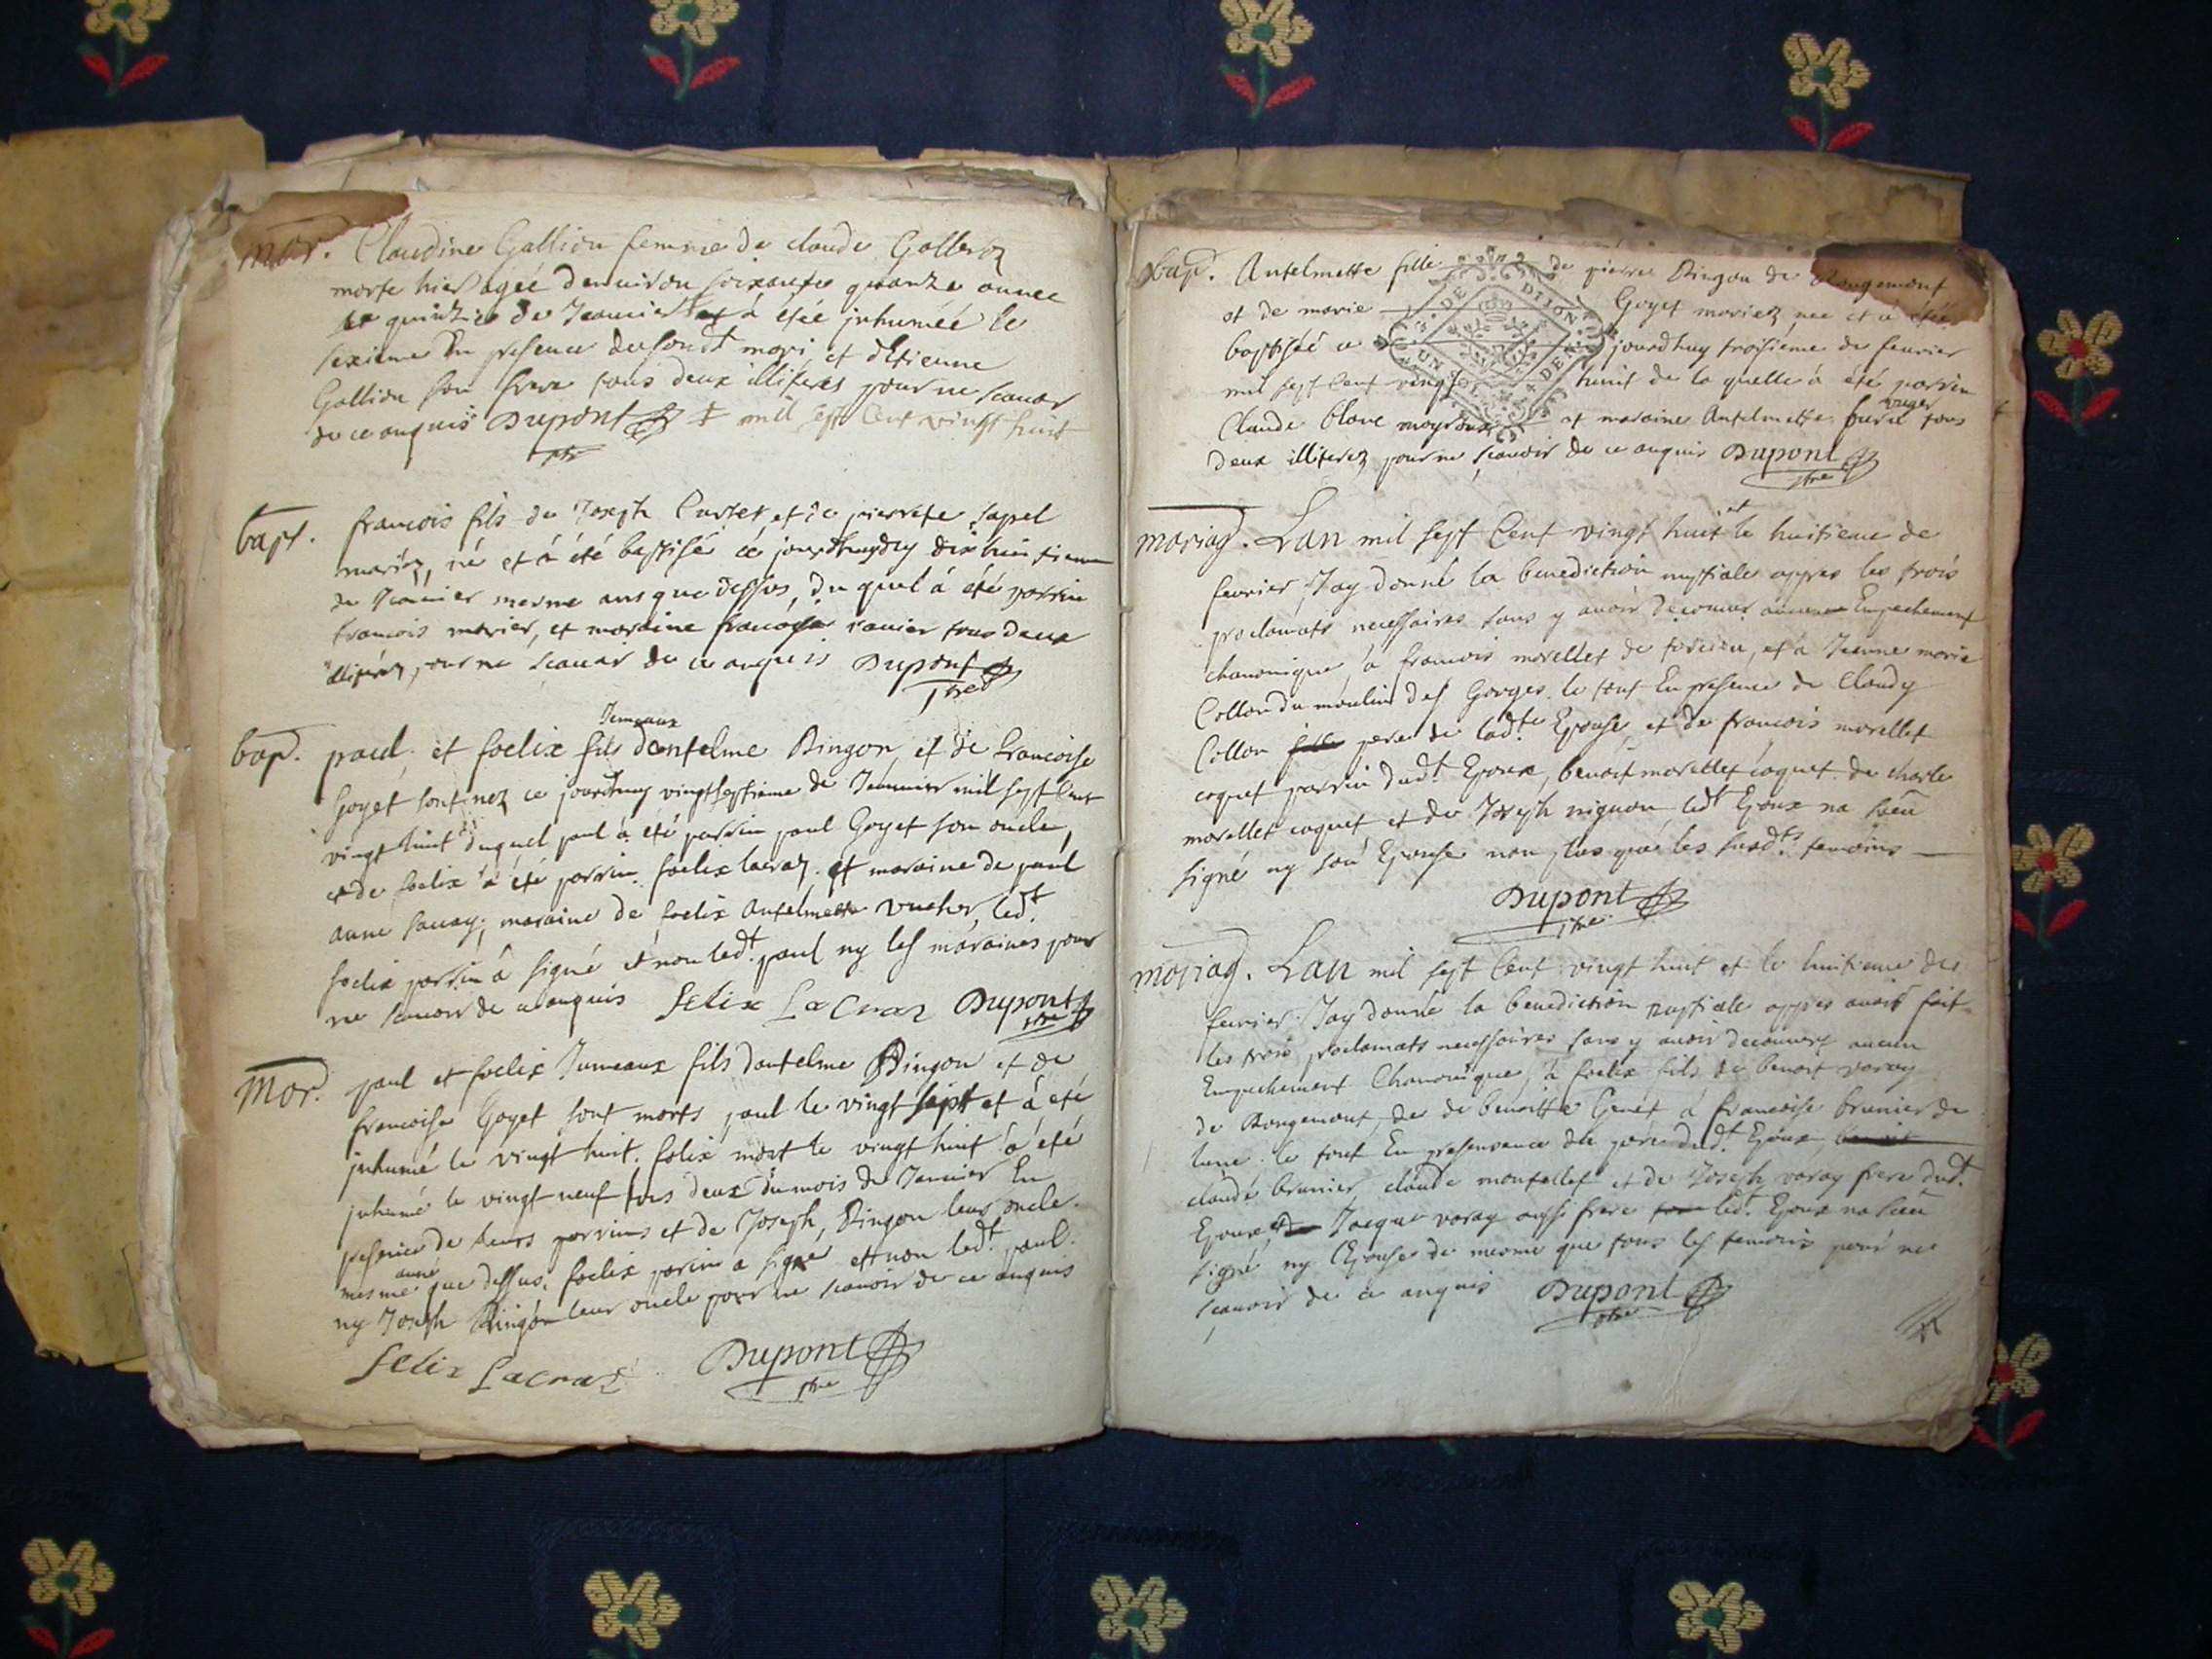 mor. Claudine Gallion femme de claude Golleroz
morte hier agée denuiron soixante quatorze annee
le quinzie de Jeanvier et a etée inhumée le
sexieme En presence dusoudt mari et detienne
Gallion son frere tous deux illiteres pour ne scauoir
de ce enquis Dupont ptre mill sept Cent vingt huit
bapt. francois fils de Joseph Curtet et de pierrete sapel
mariez, né et á été baptisé ce jourdhuy dix huitieme
de Jeanvier mesme ans que dessus, du quel á été parrin
francois mercier, et maraine francoise rauier tous deux
illiterez pour ne scauoir de ce enquis Dupont ptre
Jumeaux
bap. paul et foelix fils dantelme Bingon et de francoise
Goyet sont nez ce jourdhuy vingtseptieme de Jeanvier mil sept Cent
vingt huit duquel paul à eté parrin paul Goyet son oncle,
et de foelix á été parrin foelix lacraz et maraine de paul
anne sauay, maraine de foelix antelmette vucher ledt
foelix parrin â signé et non ledt paul ny les maraines pour
ne scauoir de ce enquis Felix LaCraz Dupont ptre
Mor. paul et foelix Jumeaux fils dantelme Bingon et de
francoise Goyet sont morts paul le vingt sept et á eté
inhumé le vingt huit. foelix mort le vingt huit á été
inhumé le vingt neuf tous deux du mois de Janvier En
presence de leurs parrins et de Joseph, Bingon leur oncle.
année
mesme que dessus. foelix parrin a signé et non ledt paul
ny Joseph Bingon leur oncle pour ne scauoir de ce enquis
Felix Lacraz Dupont ptre
bap. Antelmette fille de pierre Bingon de Rougemont
et de marie Goyet mariez, nee et à étée
baptisée ce jourdhuy troisieme de feurier
mil sept Cent vingt huit de la quelle á été parrin
vuger
Claude blanc et maraine Antelmette tous
deux illiterez pour ne scauoir de ce enquis Dupont ptre
DE DIJON
UN SOL 4 DEN
et
mariag. Lan mil sept Cent vingt huit le huitieme de
feurier Jay donné la benediction nuptiale apprez les trois
proclamats necessaires sans y auoir decouuer aucune Empechement
chanonique, à francois morellet de et á Jeanne marie
Collon du moulin des Gorges. le tout En presence de Claudy
Collon pere de ladte Epouse, et de francois morellet
coquet parrin dudt Epoux, benoit morellet coquet de charle
morellet coquet et de Joseph vignon, ledt Epoux na sceu
signé ny son Epouse non plus que les susdts temoins
Dupont ptre
mariag. Lan mil sept Cent vingt huit et le huitieme de
feurier Jay donné la benediction nuptiale apprez auoir fait
les trois proclamats necessaires sans y auoir decouuert aucun
Empechement Chanonique, à foelix fils de benoit varay
de Rougemont, de de benoitte Genet á francoise brunier de
lune le tout En presensence du père dudt Epoux,
claude brunier, claude montellet et de Joseph varay frere dudt
Epoux, Jacque varay aussi frere ledt Epoux na sceu
signé ny lEpouse de mesme que tous les temoins pour ne
scauoir de ce enquis Dupont ptre